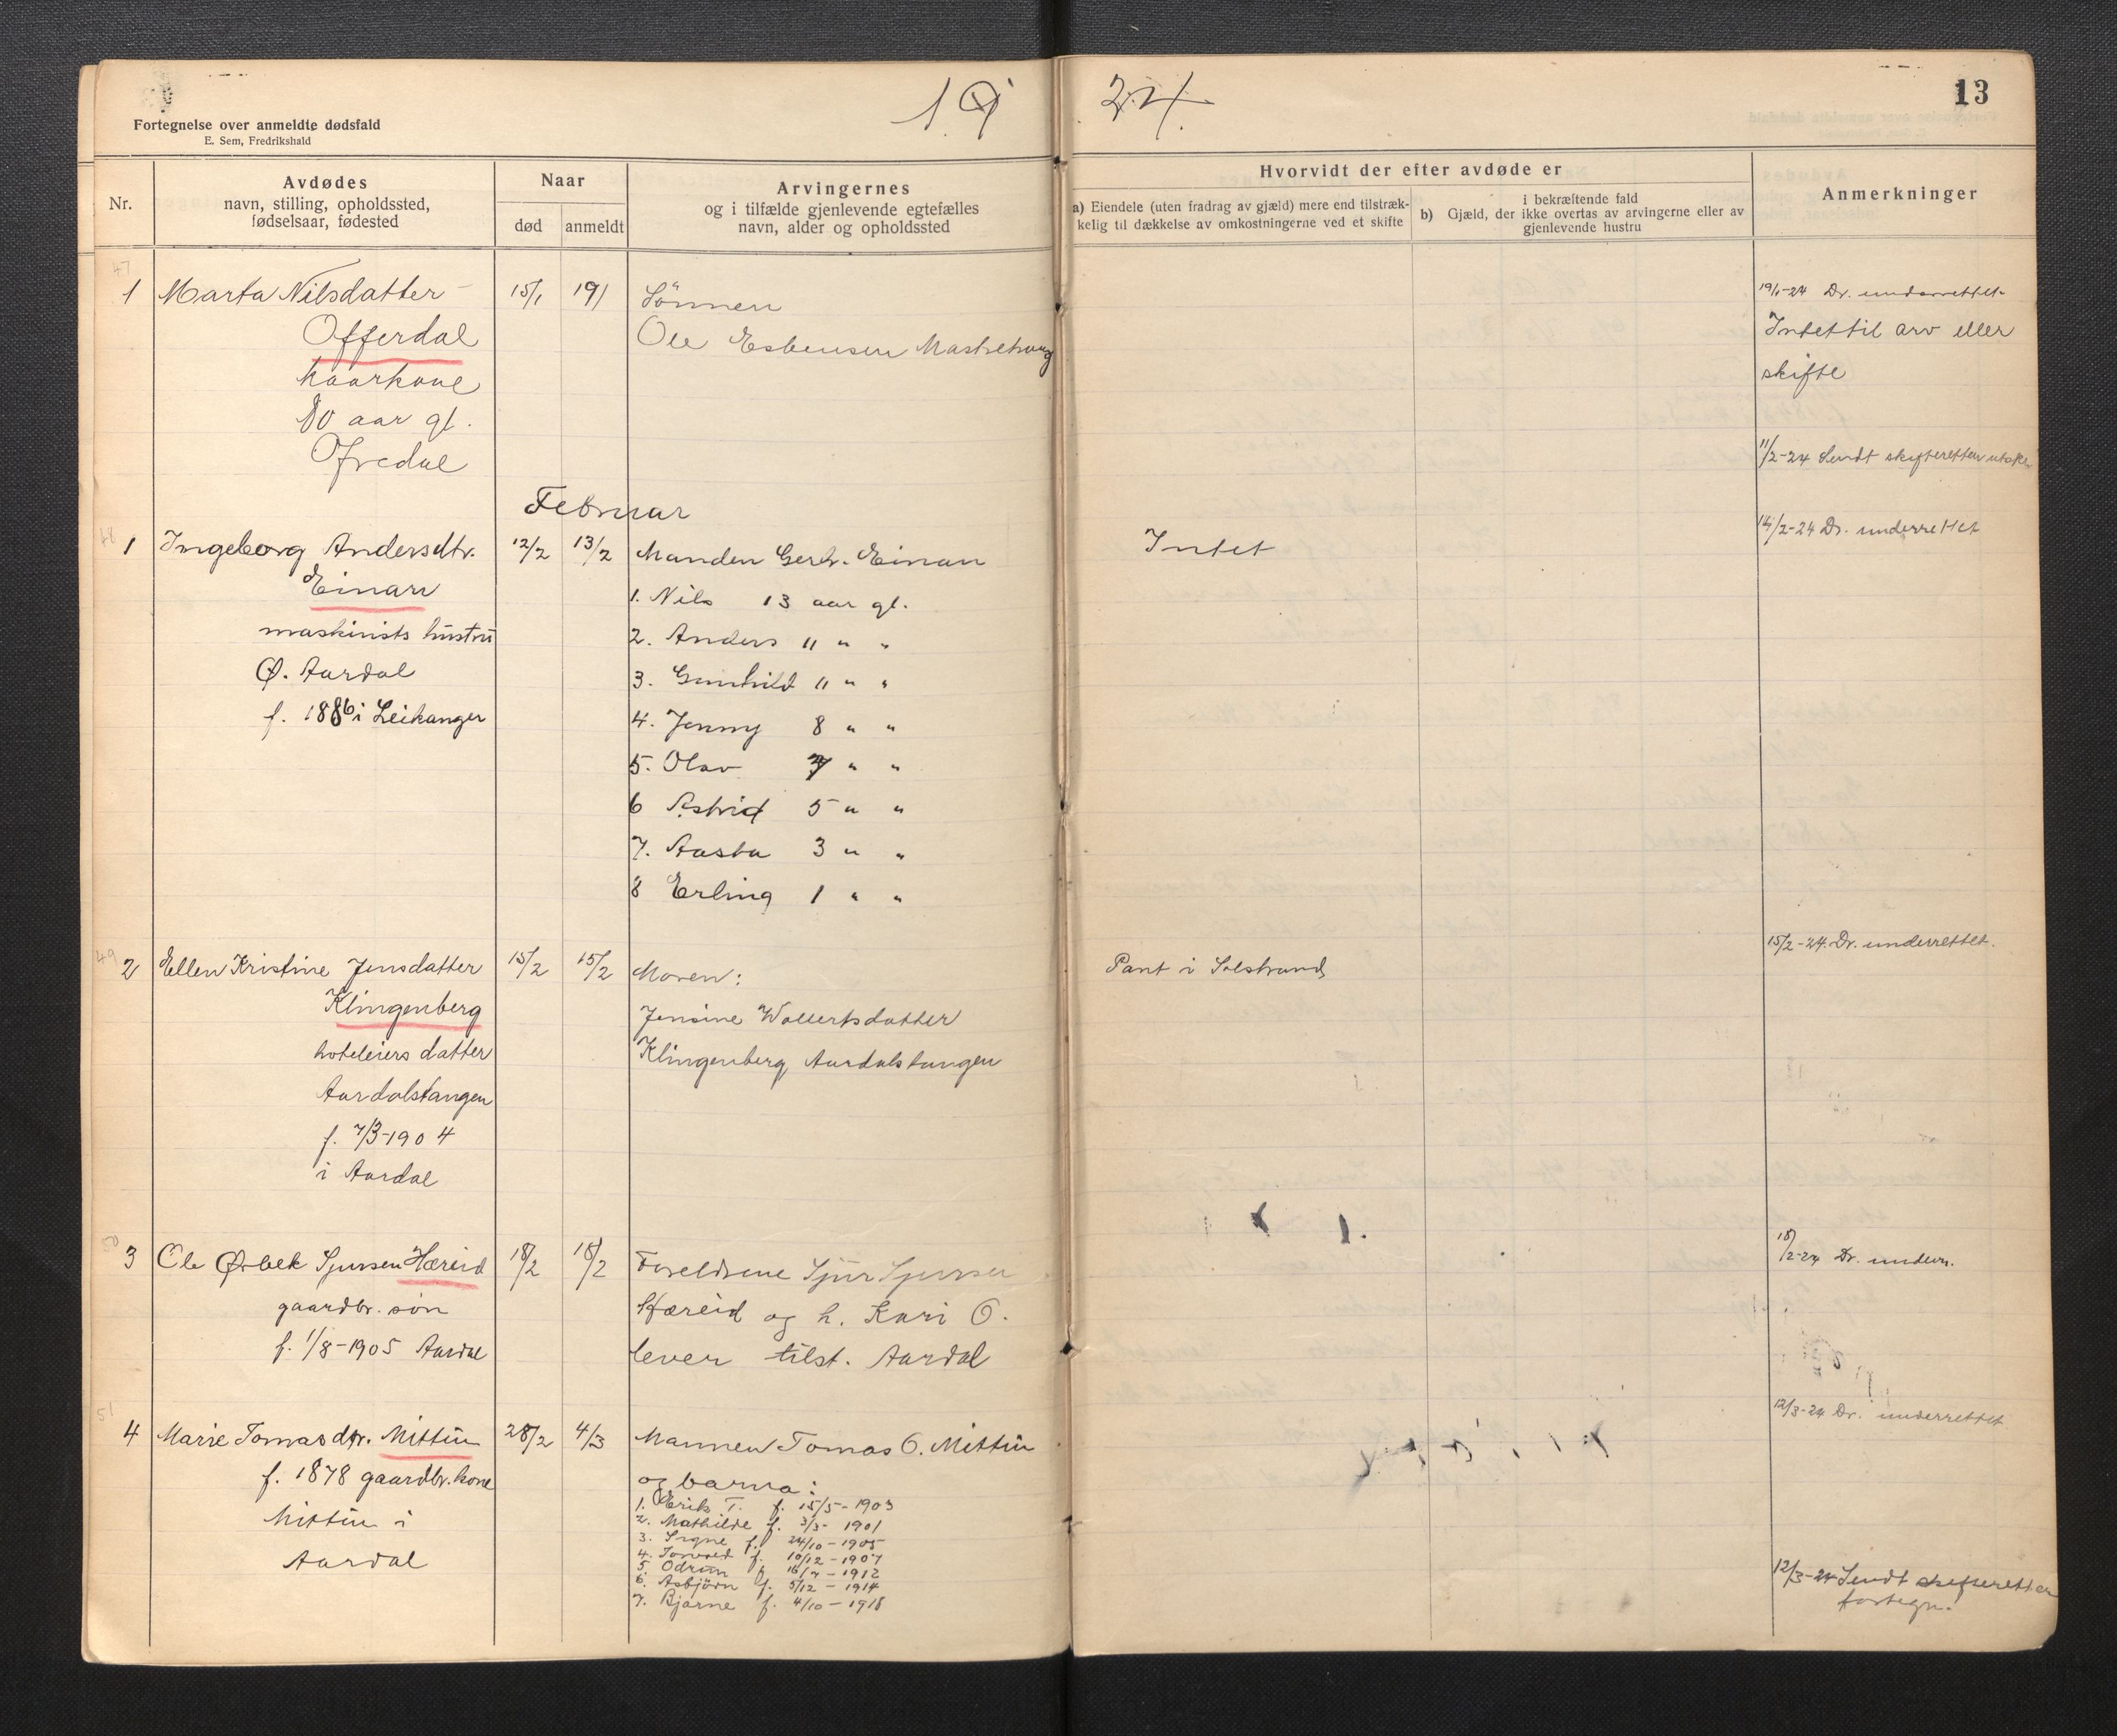 19
24.
13
Fortegnelse over anmeldte dødsfald
E. Sem, Fredrikshald
Nr.
Avdødes
navn, stilling, opholdssted,
fødselsaar, fødested
Naar
død
anmeldt
Arvingernes
og i tilfælde gjenlevende egtefælles
navn, alder og opholdssted
Hvorvidt der efter avdøde er
a) Eiendele (uten fradrag av gjæld) mere end tilstræk-
kelig til dækkelse av omkostningerne ved et skifte
i bekræftende fald
b) Gjæld, der ikke overtas av arvingerne eller av
gjenlevende hustru
Anmerkninger
47
1 Marta Nilsdatter 15/1 19/1 Sönnen 19/1-24 Dr. underrettet
Offerdal Ole Esbensen Intet til arv eller
kaarkone skifte
80 aar gl.
Ofredal 11/2-24 Sendt skifteretten
Februar
48
1 Ingeborg Andersdtr. 12/2 13/2 Manden Gerh. Einan Intet 14/2-24 Dr. underrettet
Einan 1. Nils 13 aar gl.
maskinists hustru 2. Anders 11 " "
Ø. Aardal 3. Gunhild 11 " "
f. 1886 i Leikanger 4. Jenny 8 " "
5. Olav 7 " "
6 Astrid 5 " "
7. Aasta 3 " "
8 Erling 1 " "
49
2 Ellen Kristine Jensdatter 15/2 15/2 Moren: Pant i Solstrand 15/2-24. Dr. underrettet.
Klingenberg Jensine Wollertsdatter
hoteleiers datter Klingenberg, Aardalstangen
Aardalstangen
f. 7/3-1904
i Aardal
50
3 Ole Ørbek Sjursen Hæreid 18/2 18/2 Foreldrene Sjur Sjursen 18/2-24 Dr. underr.
gaardbr. søn Hæreid og h. Kari O.
f. 1/8-1905 Aardal lever tilst. Aardal
51
4 Marie Tomasdtr. Nittin 28/2 4/3 Mannen Tomas O. Nittin 12/3-24 Dr. underrettet
f. 1878 gaardbr. kone og barna:
Nittin i 1. Erik T. f. 15/5-1903
Aardal 2. Mathilde f. 3/3- 1901
3. Signe f. 24/10-1905
4. Torvald f. 10/12-1907
5. Odrun f. 16/7-1912
6. Asbjörn f. 5/12-1914
7. Bjarne f. 4/10-1918
12/3-24 Sendt skifteretten
fortegn.